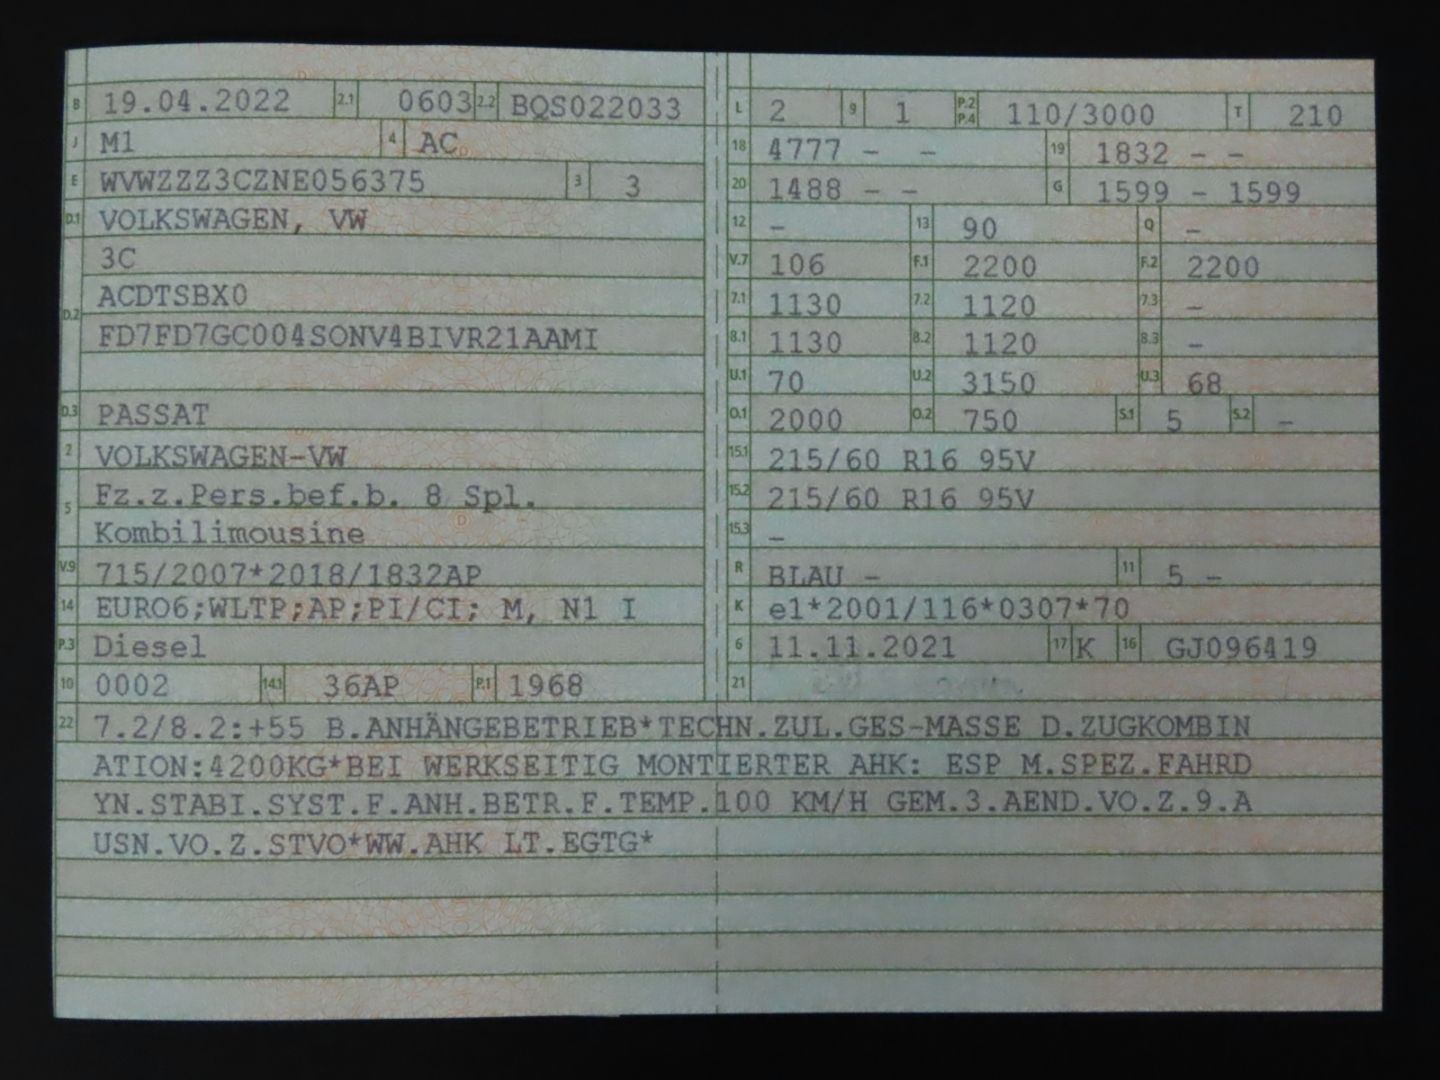 B 19.04.2022 2.1 0603 2.2 BQS022033
J M1 4 AC
E WVWZZZ3CZNE056375 3 3
D.1 VOLKSWAGEN, VW
3C
D.2 ACDTSBX0
FD7FD7GC004SONV4BIVR21AAMI
D.3 PASSAT
2 VOLKSWAGEN-VW
5 Fz.z.Pers.bef.b. 8 Spl.
Kombilimousine
V.9 715/2007*2018/1832AP
14 EURO6;WLTP;AP;PI/CI; M, N1 I
P.3 Diesel
10 0002 14.1 36AP P.1 1968
L 2 9 1 P.2 P.4 110/3000 T 210
18 4777 - - 19 1832 - -
20 1488 - - G 1599 - 1599
12 - 13 90 Q -
V.7 106 F.1 2200 F.2 2200
7.1 1130 7.2 1120 7.3 -
8.1 1130 8.2 1120 8.3 -
U.1 70 U.2 3150 U.3 68
O.1 2000 O.2 750 S.1 5 S.2 -
15.1 215/60 R16 95V
15.2 215/60 R16 95V
15.3 -
R BLAU - 11 5 -
K e1*2001/116*0307*70
6 11.11.2021 17 K 16 GJ096419
21
22 7.2/8.2:+55 B.ANHÄNGEBETRIEB*TECHN.ZUL.GES-MASSE D.ZUGKOMBIN
ATION:4200KG*BEI WERKSEITIG MONTIERTER AHK: ESP M.SPEZ.FAHRD
YN.STABI.SYST.F.ANH.BETR.F.TEMP.100 KM/H GEM.3.AEND.VO.Z.9.A
USN.VO.Z.STVO*WW.AHK LT.EGTG*